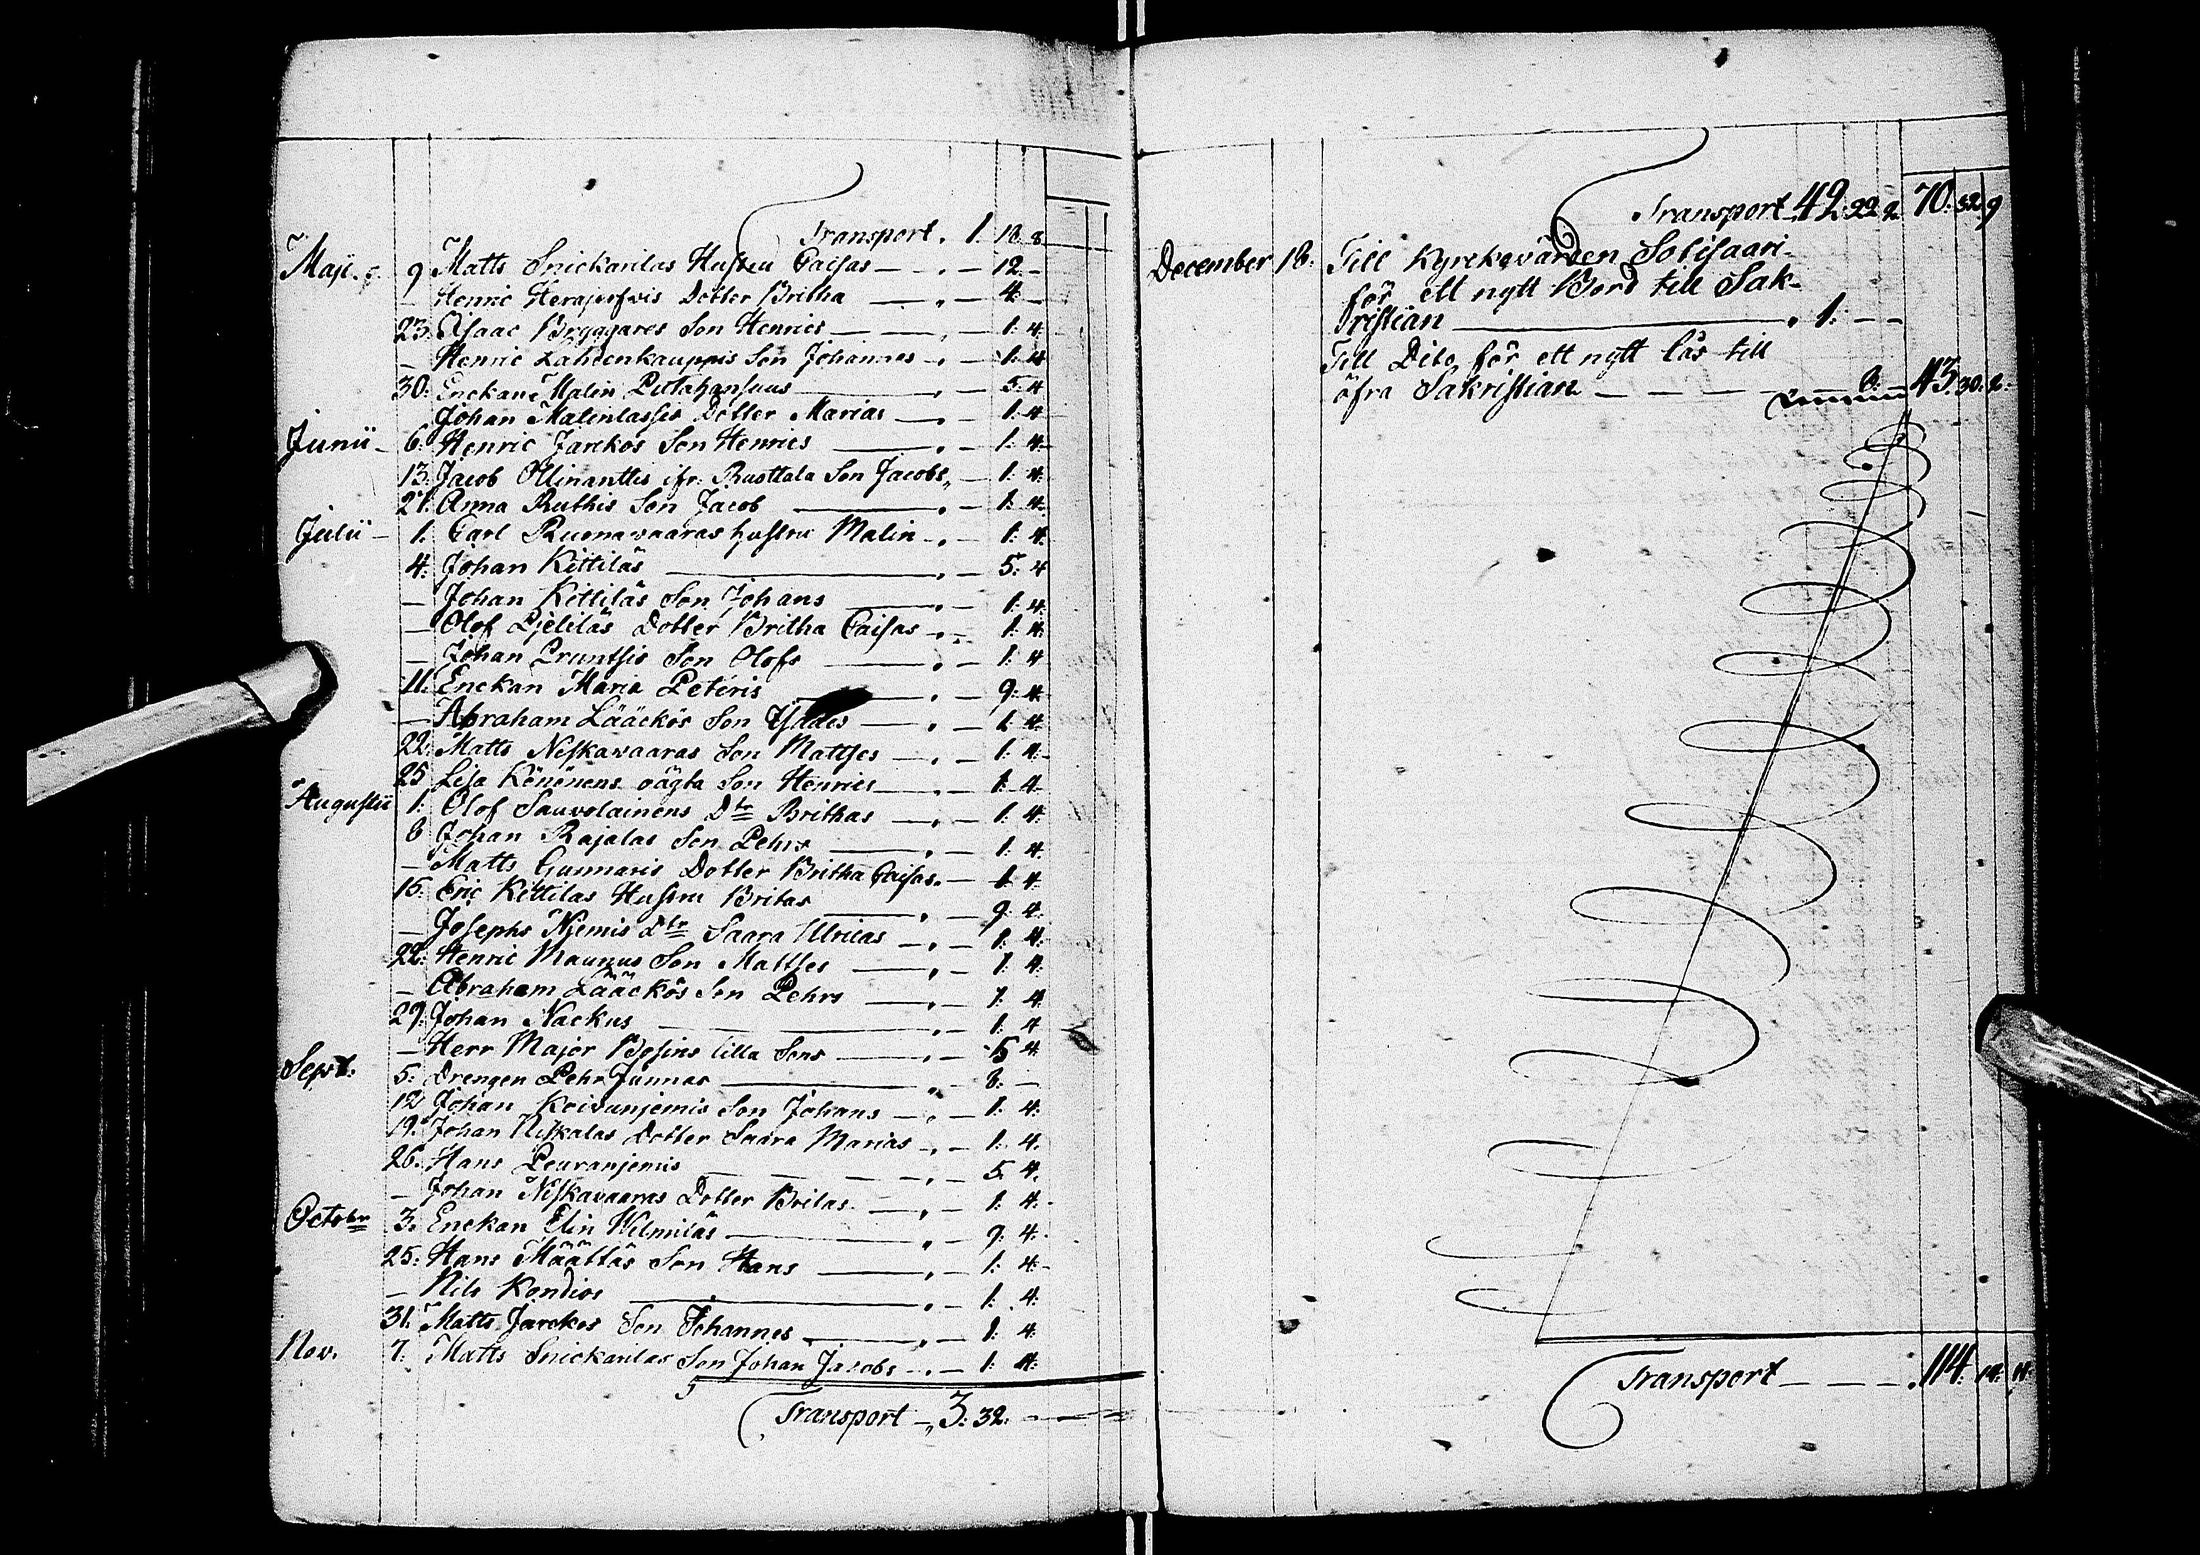 Transport . 1. 18. 8
Maji. 9 Matts Snickarilas Hustru Caisas — . — 12. —
— Henric Herajerfvis Dotter Britha — . — 4. —
23. Isaac Bryggares Son Henrics — . — 1. 4.
— Henric Lahdenkauppis Son Johannes — . — 1. 4
30. Enckan Malin — . — 5. 4
Johan Malinlassis Dotter Marias — . — 1. 4
Junii — 6. Henric Jarckos Son Henrics — . — 1. 4.
13. Jacob Ollinanttis ifr. Ruottala Son Jacobs — 1. 4.
21. Anna Ruthis Son Jacob — . — 1. 4.
Julii — 1. Carl Ruonavaaras hustru Malin — . — 1. 4.
4. Johan Kittiläs — . — 5. 4
— Johan Kittiläs Son Johans — . — 1. 4.
— Olof Pjeliläs Dotter Britha Caisas — . — 1. 4.
— Johan Pruntsis Son Olofs — . — 1. 4
11. Enckan Maria Peteris — . — 9. 4.
— Abraham Lääckös Son Isaacs — . — 1. 4.
22. Matts Niskavaaras Son Mattses — . — 1. 4.
25. Lisa Könönens oägta Son Henrics — . — 1. 4.
Augustii 1. Olof Sauvolainens Dtr Brithas — . — 1. 4.
8 Johan Rajalas Son Pehrs — . — 1. 4.
— Matts Gunnaris Dotter Britha Caisas. — 1. 4.
15. Eric Kittilas Hustru Britas — . — 9. 4.
— Josephs Niemis Dtr Saara Ulricas — . — 1. 4.
22. Henric Maunus Son Mattses — . — 1. 4.
— Abraham Lääckös Son Pehrs — . — 1. 4.
29. Johan Nackus — . — 1. 4
— Herr Major Bosins lilla Sons — . — 5 4.
Sept. 5. Drengen Pehr Junnas — „ — 8. —
12 Johan Koivunjemis Son Johans — „ — 1. 4.
19. Johan Niskalas Dotter Saara Marias — . 1. 4.
26. Hans Peuranjemis — . — 5. 4.
— Johan Niskavaaras Dotter Britas — . — 1. 4.
Octobr 3. Enckan Elin Wilmiläs — „ — 9. 4.
25. Hans Määttäs Son Hans — . — 1. 4.
— Nils Kondios — . — 1. 4.
31. Matts Jarckos Son Johannes — „ — 1. 4.
Nov. 7. Matts Snickarilas Son Johan Jacobs — . — 1. 4.
Transport — „ 3. 32. —
Transport 42. 22. 2. 70. 32. 9
December 18. Till Kyrckovärden Solisaari
för ett nytt Bord till Sak-
ristian — . 1. — —
Till Dito för ett nytt lås till
öfra Sakristian — — — 8. — 43. 30. 2.
Transport — — — . 114.